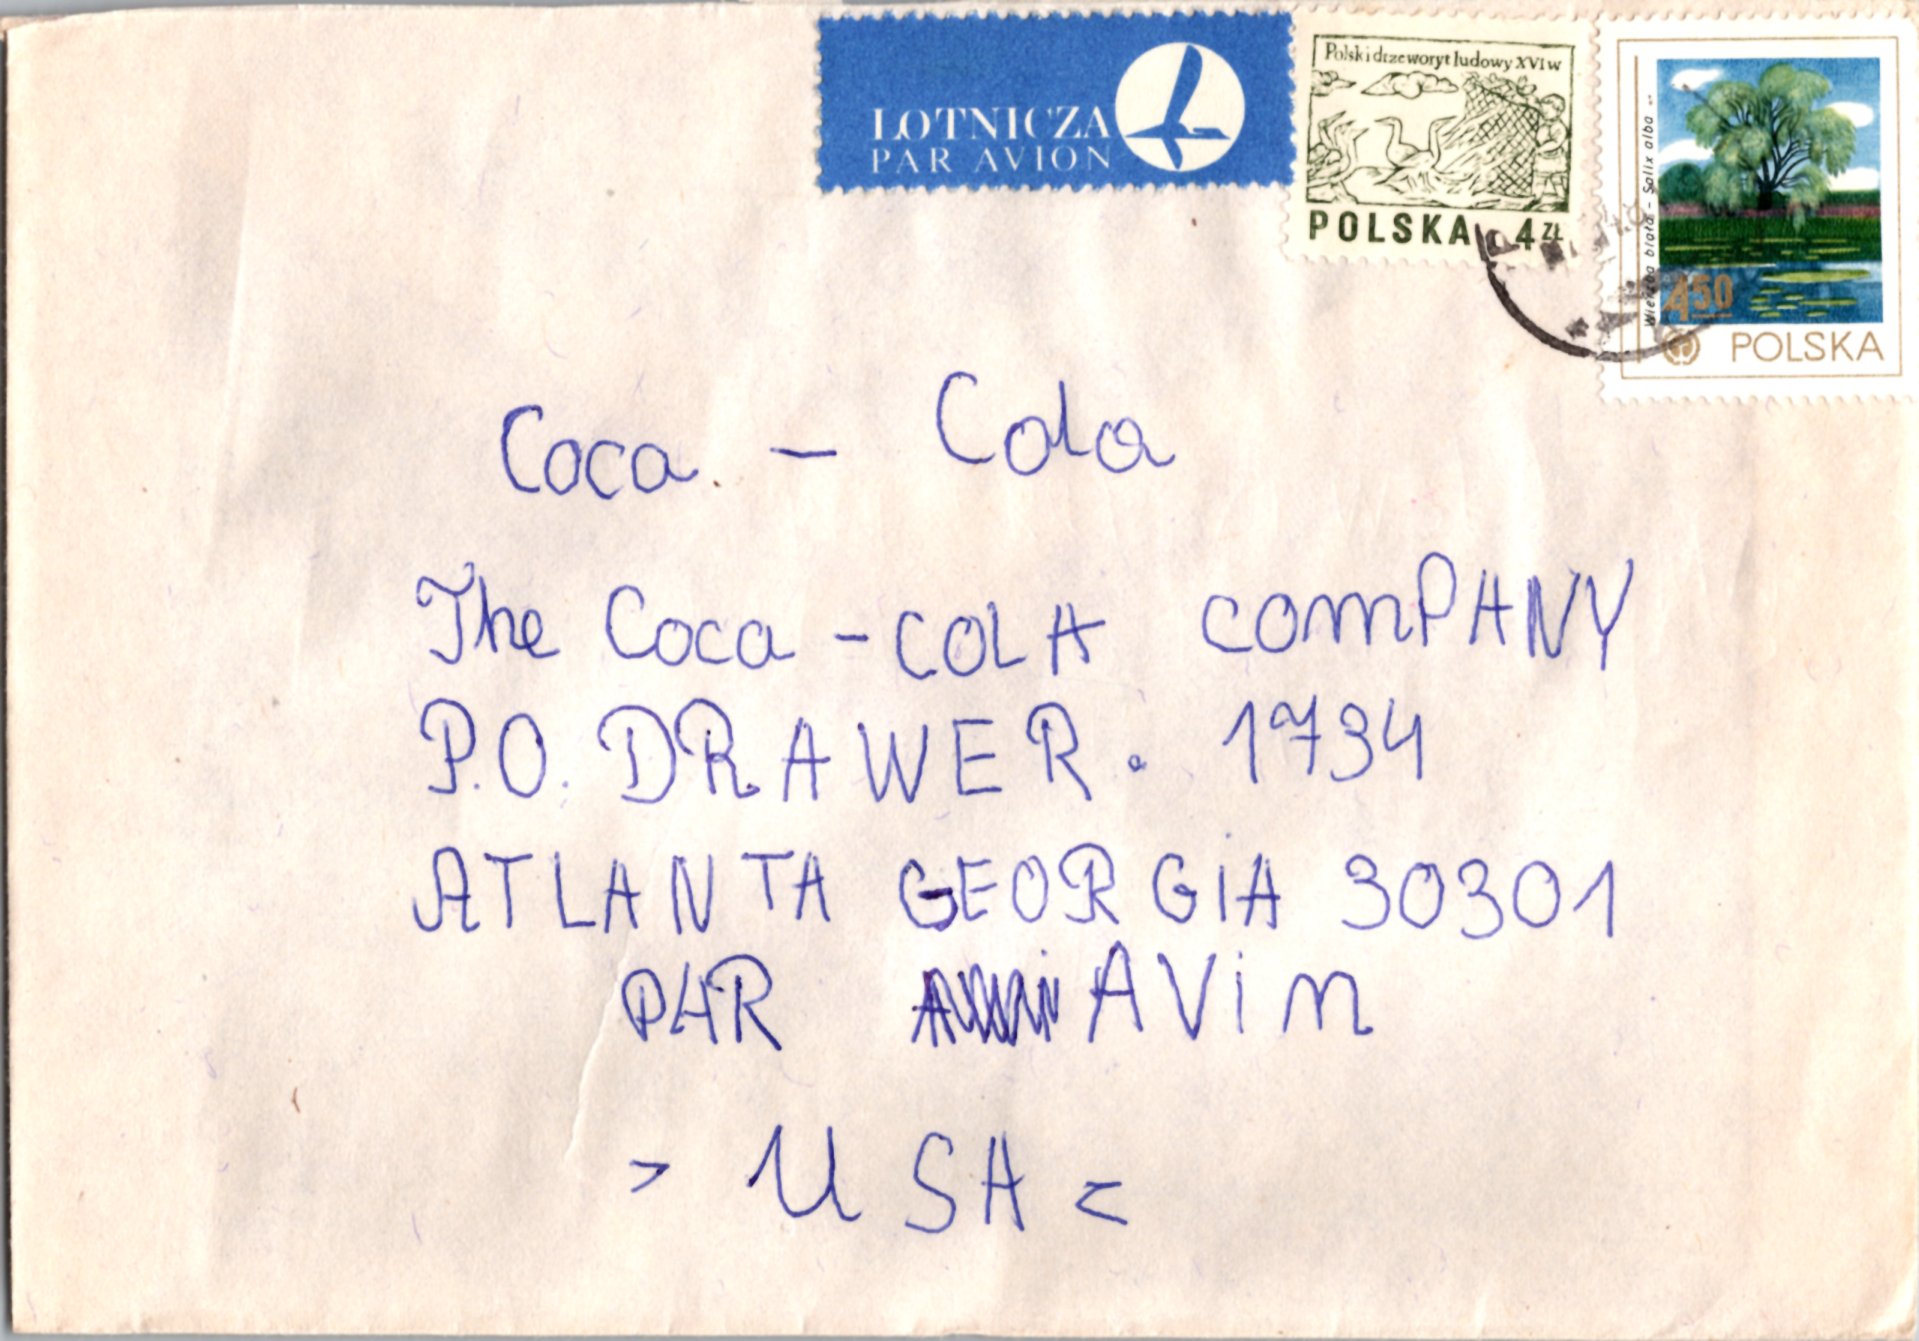 LOTNICZA
PAR AVION
Polski drzeworyt ludowy XVI w
POLSKA 4 ZŁ
Wierzba biała - Salix alba
450
POLSKA
Coca - Cola
The Coca - COLA COMPANY
P.O. DRAWER. 1734
ATLANTA GEORGIA 30301
PAR AViN
> USA <